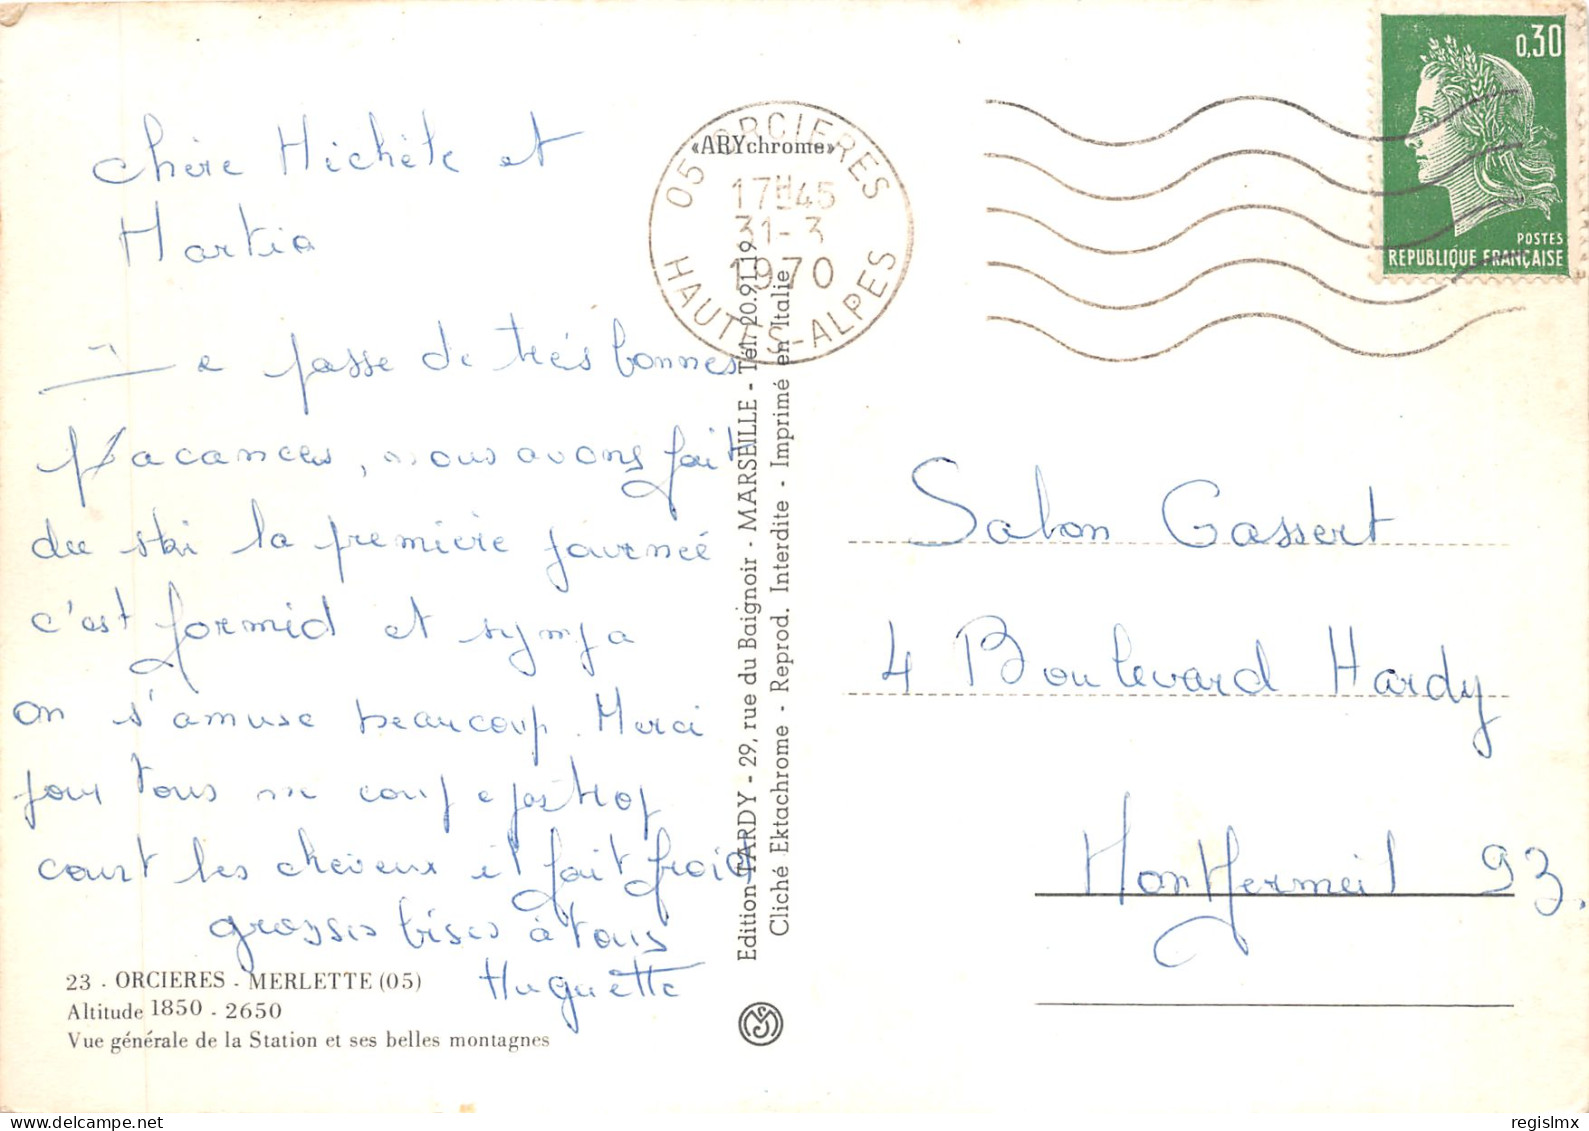 Chère Michèle et
Martia
Je passe de très bonnes
Vacances, nous avons fait
du ski la première journeé
c'est formid et sympa
on s'amuse beaucoup. Merci
pour tous coupe pas trop
court les cheveux il fait froid
grosses bises à tous
Huguette
23 - ORCIERES - MERLETTE (05)
Altitude 1850 - 2650
Vue générale de la Station et ses belles montagnes
«ARYchrome»
05 ORCIERES
17H45
31-3
1970
HAUTES-ALPES
Edition TARDY - 29, rue du Baignoir - MARSEILLE - Tél. 20.91.19
Cliché Ektachrome - Reprod. Interdite - Imprimé en Italie
0,30
POSTES
REPUBLIQUE FRANÇAISE
Salon Gassert
4 Boulevard Hardy
Montfermeil 93.
regislmx